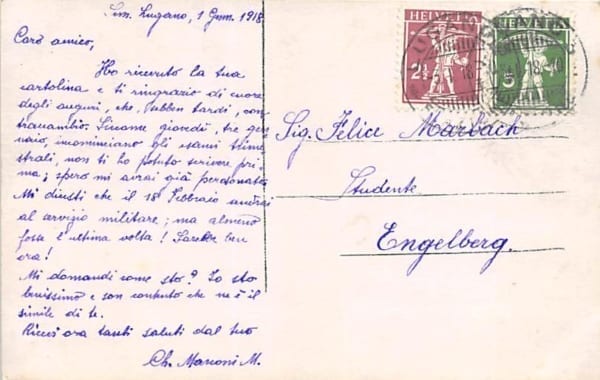 Lugano, 1 Genn. 1918
Caro amico,
Ho ricevuto la tua
cartolina e ti ringrazio di cuore
degli auguri, che, sebben tardi, con
traccambio. Siccome giovedì, tre gen
naio, incominciano gli esami trime
strali, non ti ho potuto scrivere pri
ma; spero mi avrai già perdonato.
Mi dicesti che il 18 febbraio andrai
al servizio militare; ma almeno
fosse l'ultima volta! Sarebbe ben
ora!
Mi domandi come sto? Io sto
benissimo e son contento che ne è il
simile di te.
Ricevi ora tanti saluti dal tuo
Ch. Marconi M.
HELVETIA
2½
HELVETIA
5
Sig. Felice Marbach
Studente
Engelberg.